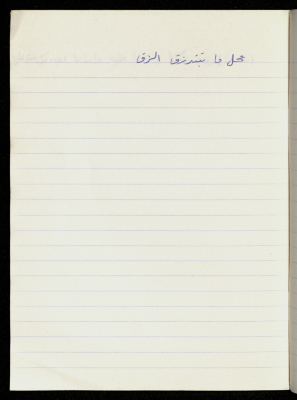 محل ما بتنرزق الزق